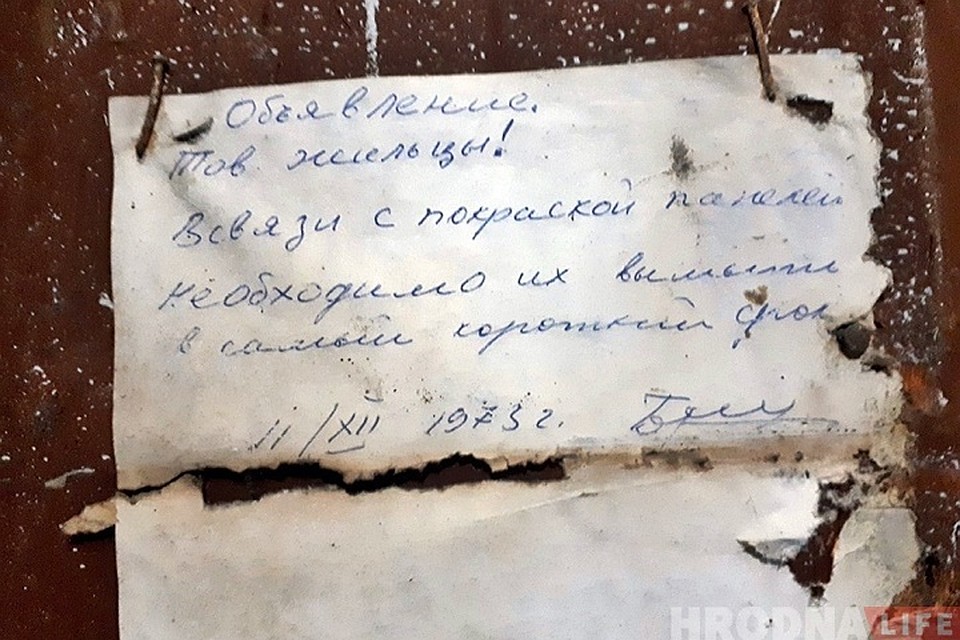 Объявление.
Тов жильцы!
Всвязи с покраской панелей
необходимо их вымыть
в самый короткий срок
11/XII 1973 г.
HRODNA LIFE